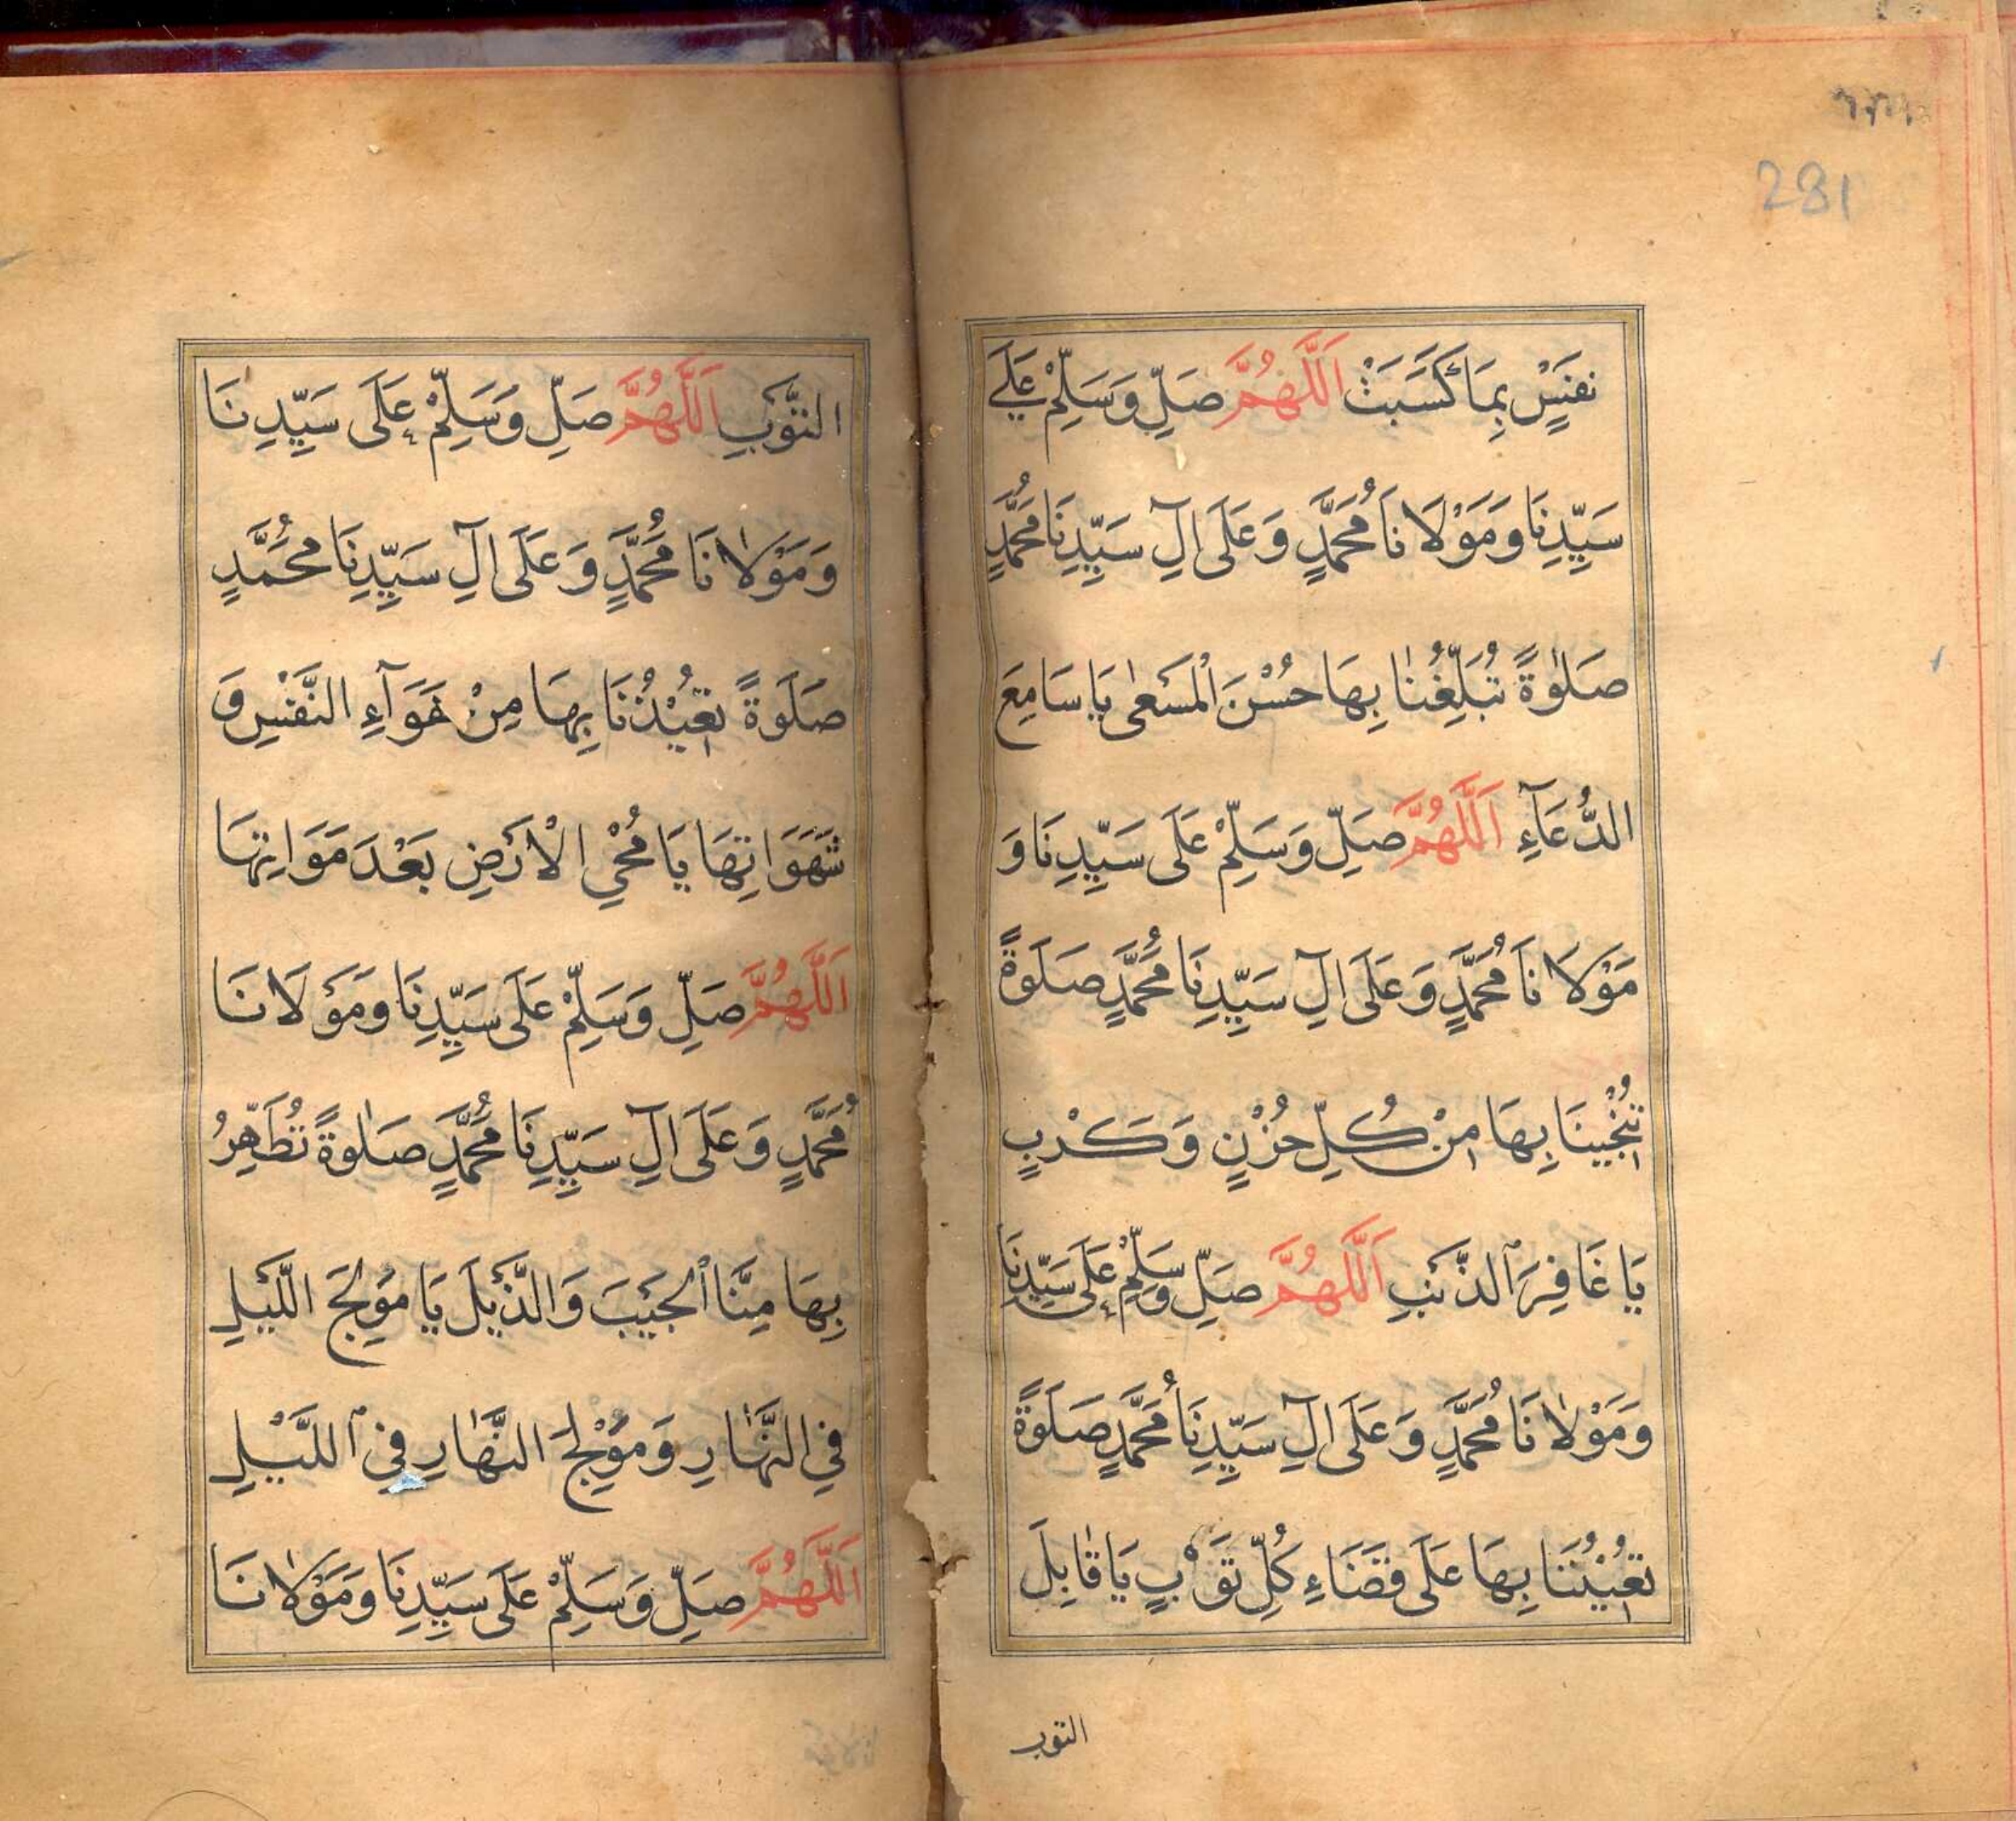 281
نَفْسٍ بِمَا كَسَبَتْ اَللّٰهُمَّ صَلِّ وَسَلِّمْ عَلٰى
سَيِّدِنَا وَمَوْلَانَا مُحَمَّدٍ وَعَلَى اٰلِ سَيِّدِنَا مُحَمَّدٍ
صَلٰوةً تُبَلِّغُنَا بِهَا حُسْنَ الْمَسْعٰى يَا سَامِعَ
الدُّعَآءِ اَللّٰهُمَّ صَلِّ وَسَلِّمْ عَلَى سَيِّدِنَا وَ
مَوْلَانَا مُحَمَّدٍ وَعَلَى اٰلِ سَيِّدِنَا مُحَمَّدٍ صَلَوةً
تُنْجِينَا بِهَا مِنْ كُلِّ حُزْنٍ وَكَرْبٍ
يَا غَافِرَ الذَّنْبِ اَللّٰهُمَّ صَلِّ وَسَلِّمْ عَلَى سَيِّدِنَا
وَمَوْلَانَا مُحَمَّدٍ وَعَلَى اٰلِ سَيِّدِنَا مُحَمَّدٍ صَلَوةً
تُعِيْنُنَا بِهَا عَلَى قَضَاءِ كُلِّ تَوْبٍ يَا قَابِلَ
التوب
التَّوْبِ اَللّٰهُمَّ صَلِّ وَسَلِّمْ عَلَى سَيِّدِنَا
وَمَوْلَانَا مُحَمَّدٍ وَعَلَى اٰلِ سَيِّدِنَا مُحَمَّدٍ
صَلَوةً تُعِيْذُنَا بِهَا مِنْ هَوَآءِ النَّفْسِ وَ
شَهَوَاتِهَا يَا مُحْيِ الْاَرْضِ بَعْدَ مَوَاتِهَا
اَللّٰهُمَّ صَلِّ وَسَلِّمْ عَلَى سَيِّدِنَا وَمَوْلَانَا
مُحَمَّدٍ وَعَلَى اٰلِ سَيِّدِنَا مُحَمَّدٍ صَلٰوةً تُطَهِّرُ
بِهَا مِنَّا الْجَيْبَ وَالذَّيْلَ يَا مُوْلِجَ اللَّيْلِ
فِي النَّهَارِ وَمُوْلِجَ النَّهَارِ فِي اللَّيْلِ
اَللّٰهُمَّ صَلِّ وَسَلِّمْ عَلَى سَيِّدِنَا وَمَوْلَانَا